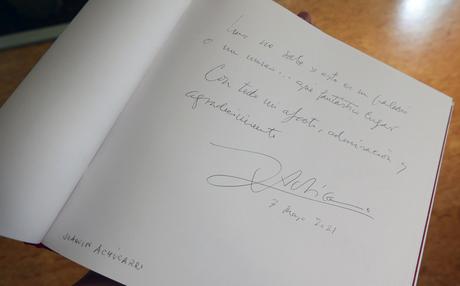 Uno no sabe si esto es un palacio
o un museo... qué fantástico lugar
Con todo mi afecto, admiración y
agradecimiento
7 Mayo 2021
JOAQUIN ACHÚCARRO